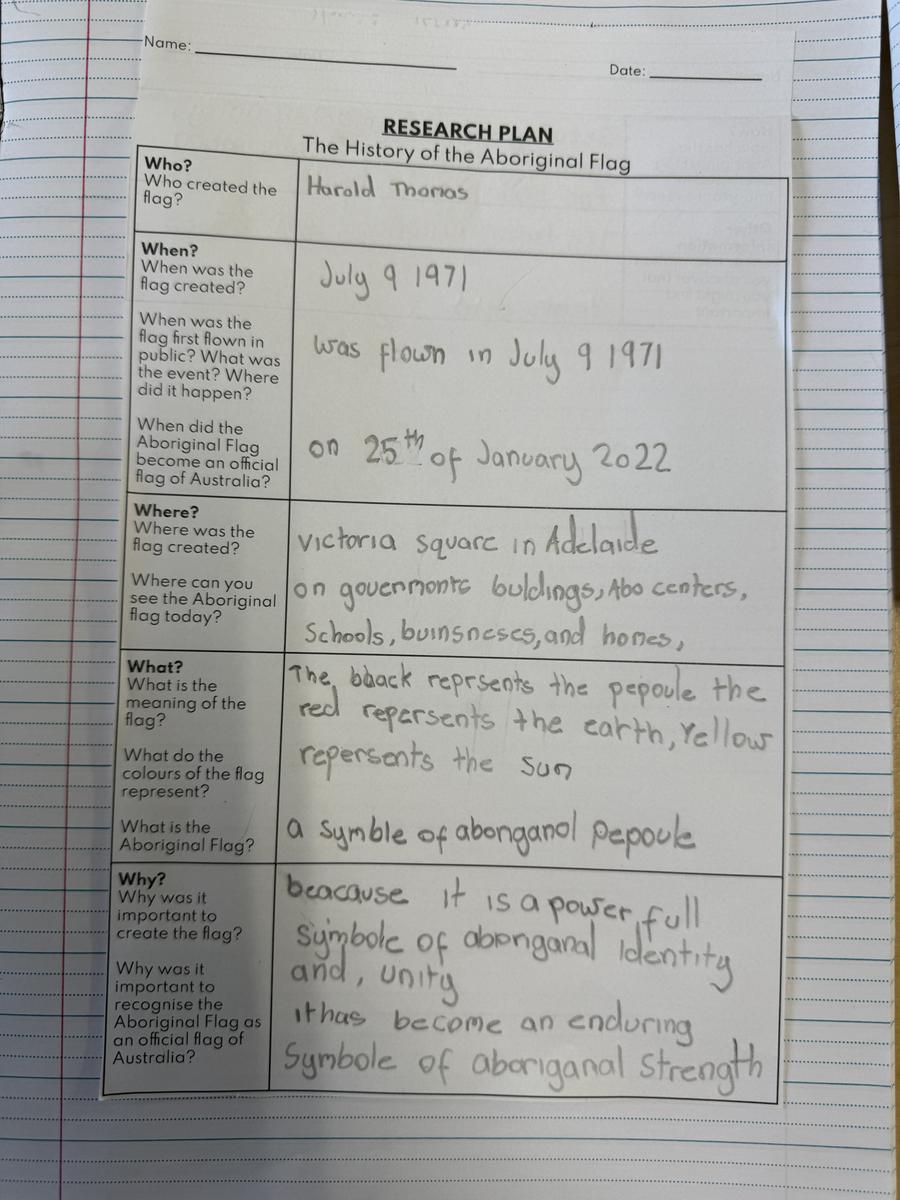 Name:
Date:
RESEARCH PLAN
The History of the Aboriginal Flag
Who?
Who created the
flag?
Harold Thomas
When?
When was the
flag created?
July 9 1971
When was the
flag first flown in
public? What was
the event? Where
did it happen?
was flown in July 9 1971
When did the
Aboriginal Flag
become an official
flag of Australia?
on 25th of January 2022
Where?
Where was the
flag created?
victoria square in Adelaide
Where can you
see the Aboriginal
flag today?
on govermonts buldings, Abo centers,
Schools, buinsneses, and homes,
What?
What is the
meaning of the
flag?
What do the
colours of the flag
represent?
The, bback reprsents the pepoule the
red repersents the earth, Yellow
repersents the sun
What is the
Aboriginal Flag?
a symble of aborganol pepoule
Why?
Why was it
important to
create the flag?
beacause it is a power full
symbole of aborganal Identity
and, unity
Why was it
important to
recognise the
Aboriginal Flag as
an official flag of
Australia?
it has become an enduring
Symbole of aboriganal strength